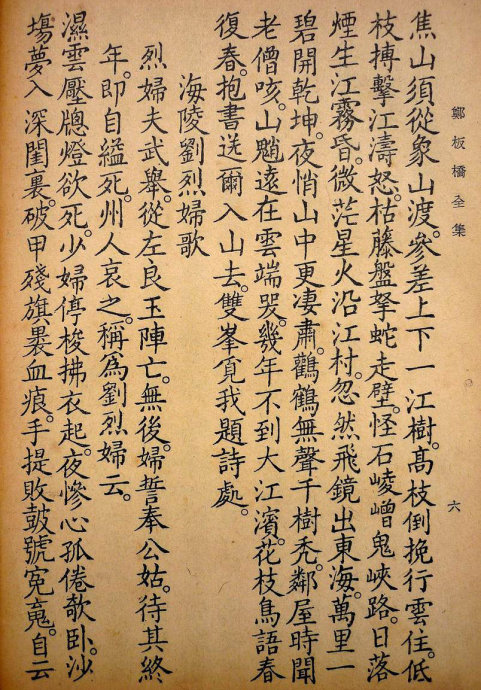 鄭板橋全集
六
焦山須從象山渡。參差上下一江樹。高枝倒挽行雲住。低
枝搏擊江濤怒。枯藤盤拏蛇走壁。怪石崚嶒鬼峽路。日落
煙生江霧昏。微茫星火沿江村。忽然飛鏡出東海。萬里一
碧開乾坤。夜悄山中更凄肅。鸛鶴無聲千樹禿。鄰屋時聞
老僧咳。山魈遠在雲端哭。幾年不到大江濱。花枝鳥語春
復春。抱書送爾入山去。雙峯覓我題詩處。
海陵劉烈婦歌
烈婦夫武舉。從左良玉陣亡。無後。婦誓奉公姑。待其終
年。即自縊死。州人哀之。稱爲劉烈婦云。
濕雲壓牕燈欲死。少婦停梭拂衣起。夜慘心孤倦欹卧。沙
塲夢入深閨裏。破甲殘旗裹血痕。手提敗鼓號寃䰟。自云